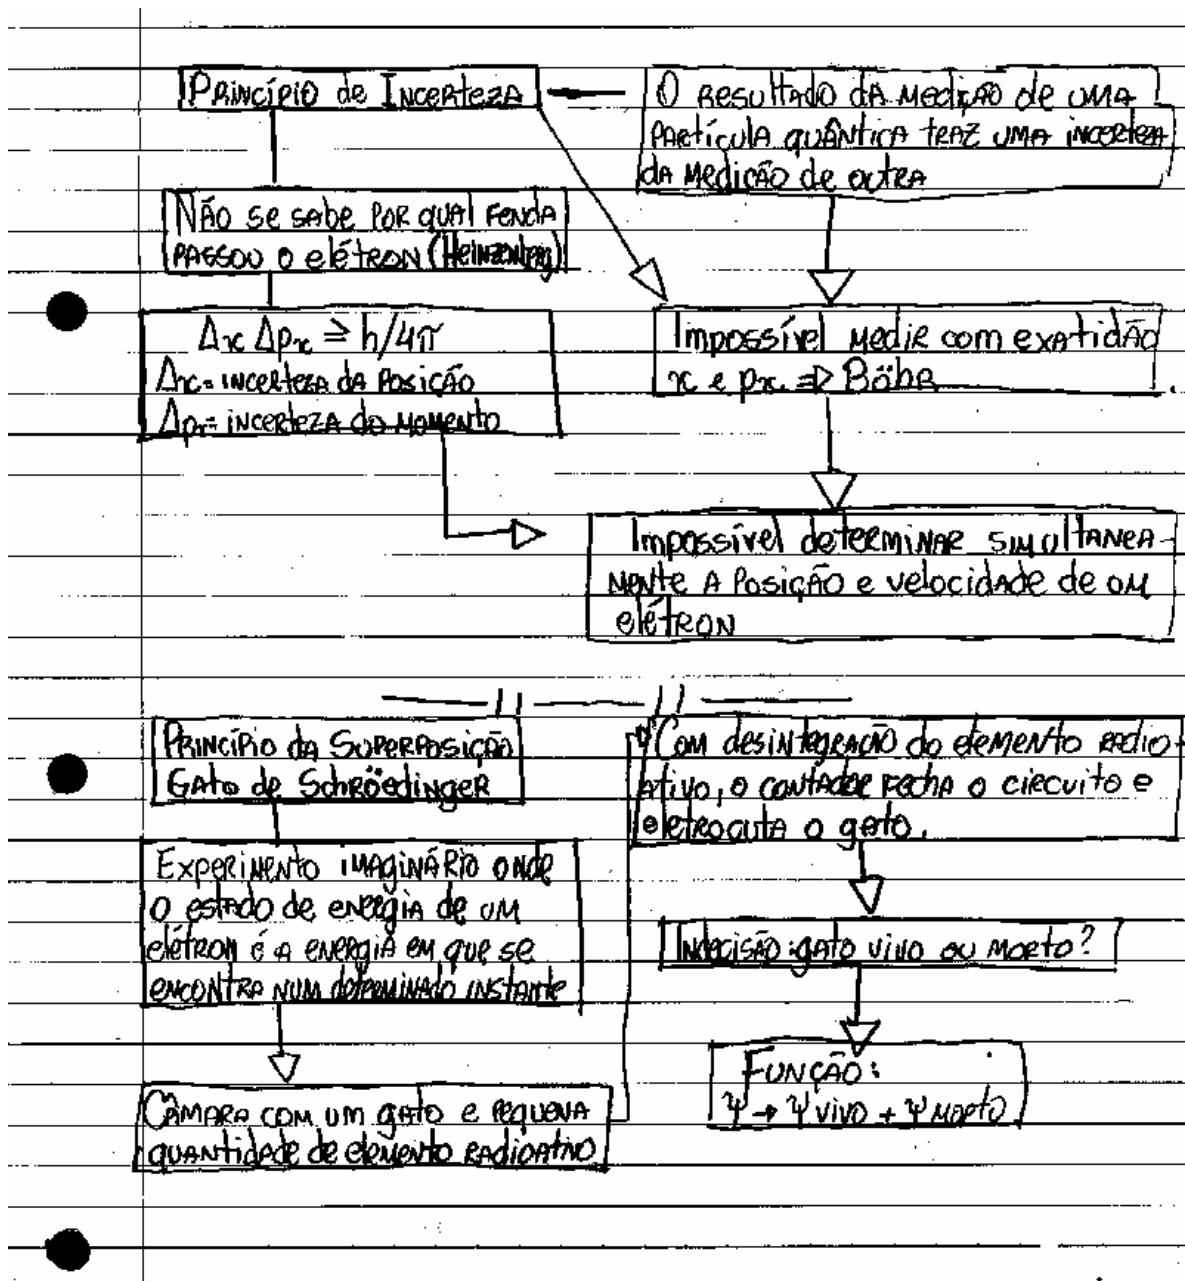 Princípio de Incerteza
O resultado da medição de uma
partícula quântica traz uma incerteza
da medição de outra
Não se sabe por qual fenda
passou o elétron (Heinzenberg)
Δx Δpx ≥ h/4π
Δx = incerteza da posição
Δpx = incerteza do momento
Impossível medir com exatidão
x e px ⇒ Böhr
Impossível determinar simultanea-
mente a posição e velocidade de um
elétron
Princípio da Superposição
Gato de Schröedinger
Experimento imaginário onde
o estado de energia de um
elétron é a energia em que se
encontra num determinado instante
Câmara com um gato e pequena
quantidade de elemento radioativo
Com desintegração do elemento radio-
ativo, o contador fecha o circuito e
eletrocuta o gato.
Indecisão: gato vivo ou morto?
Função:
Ψ → Ψ vivo + Ψ morto